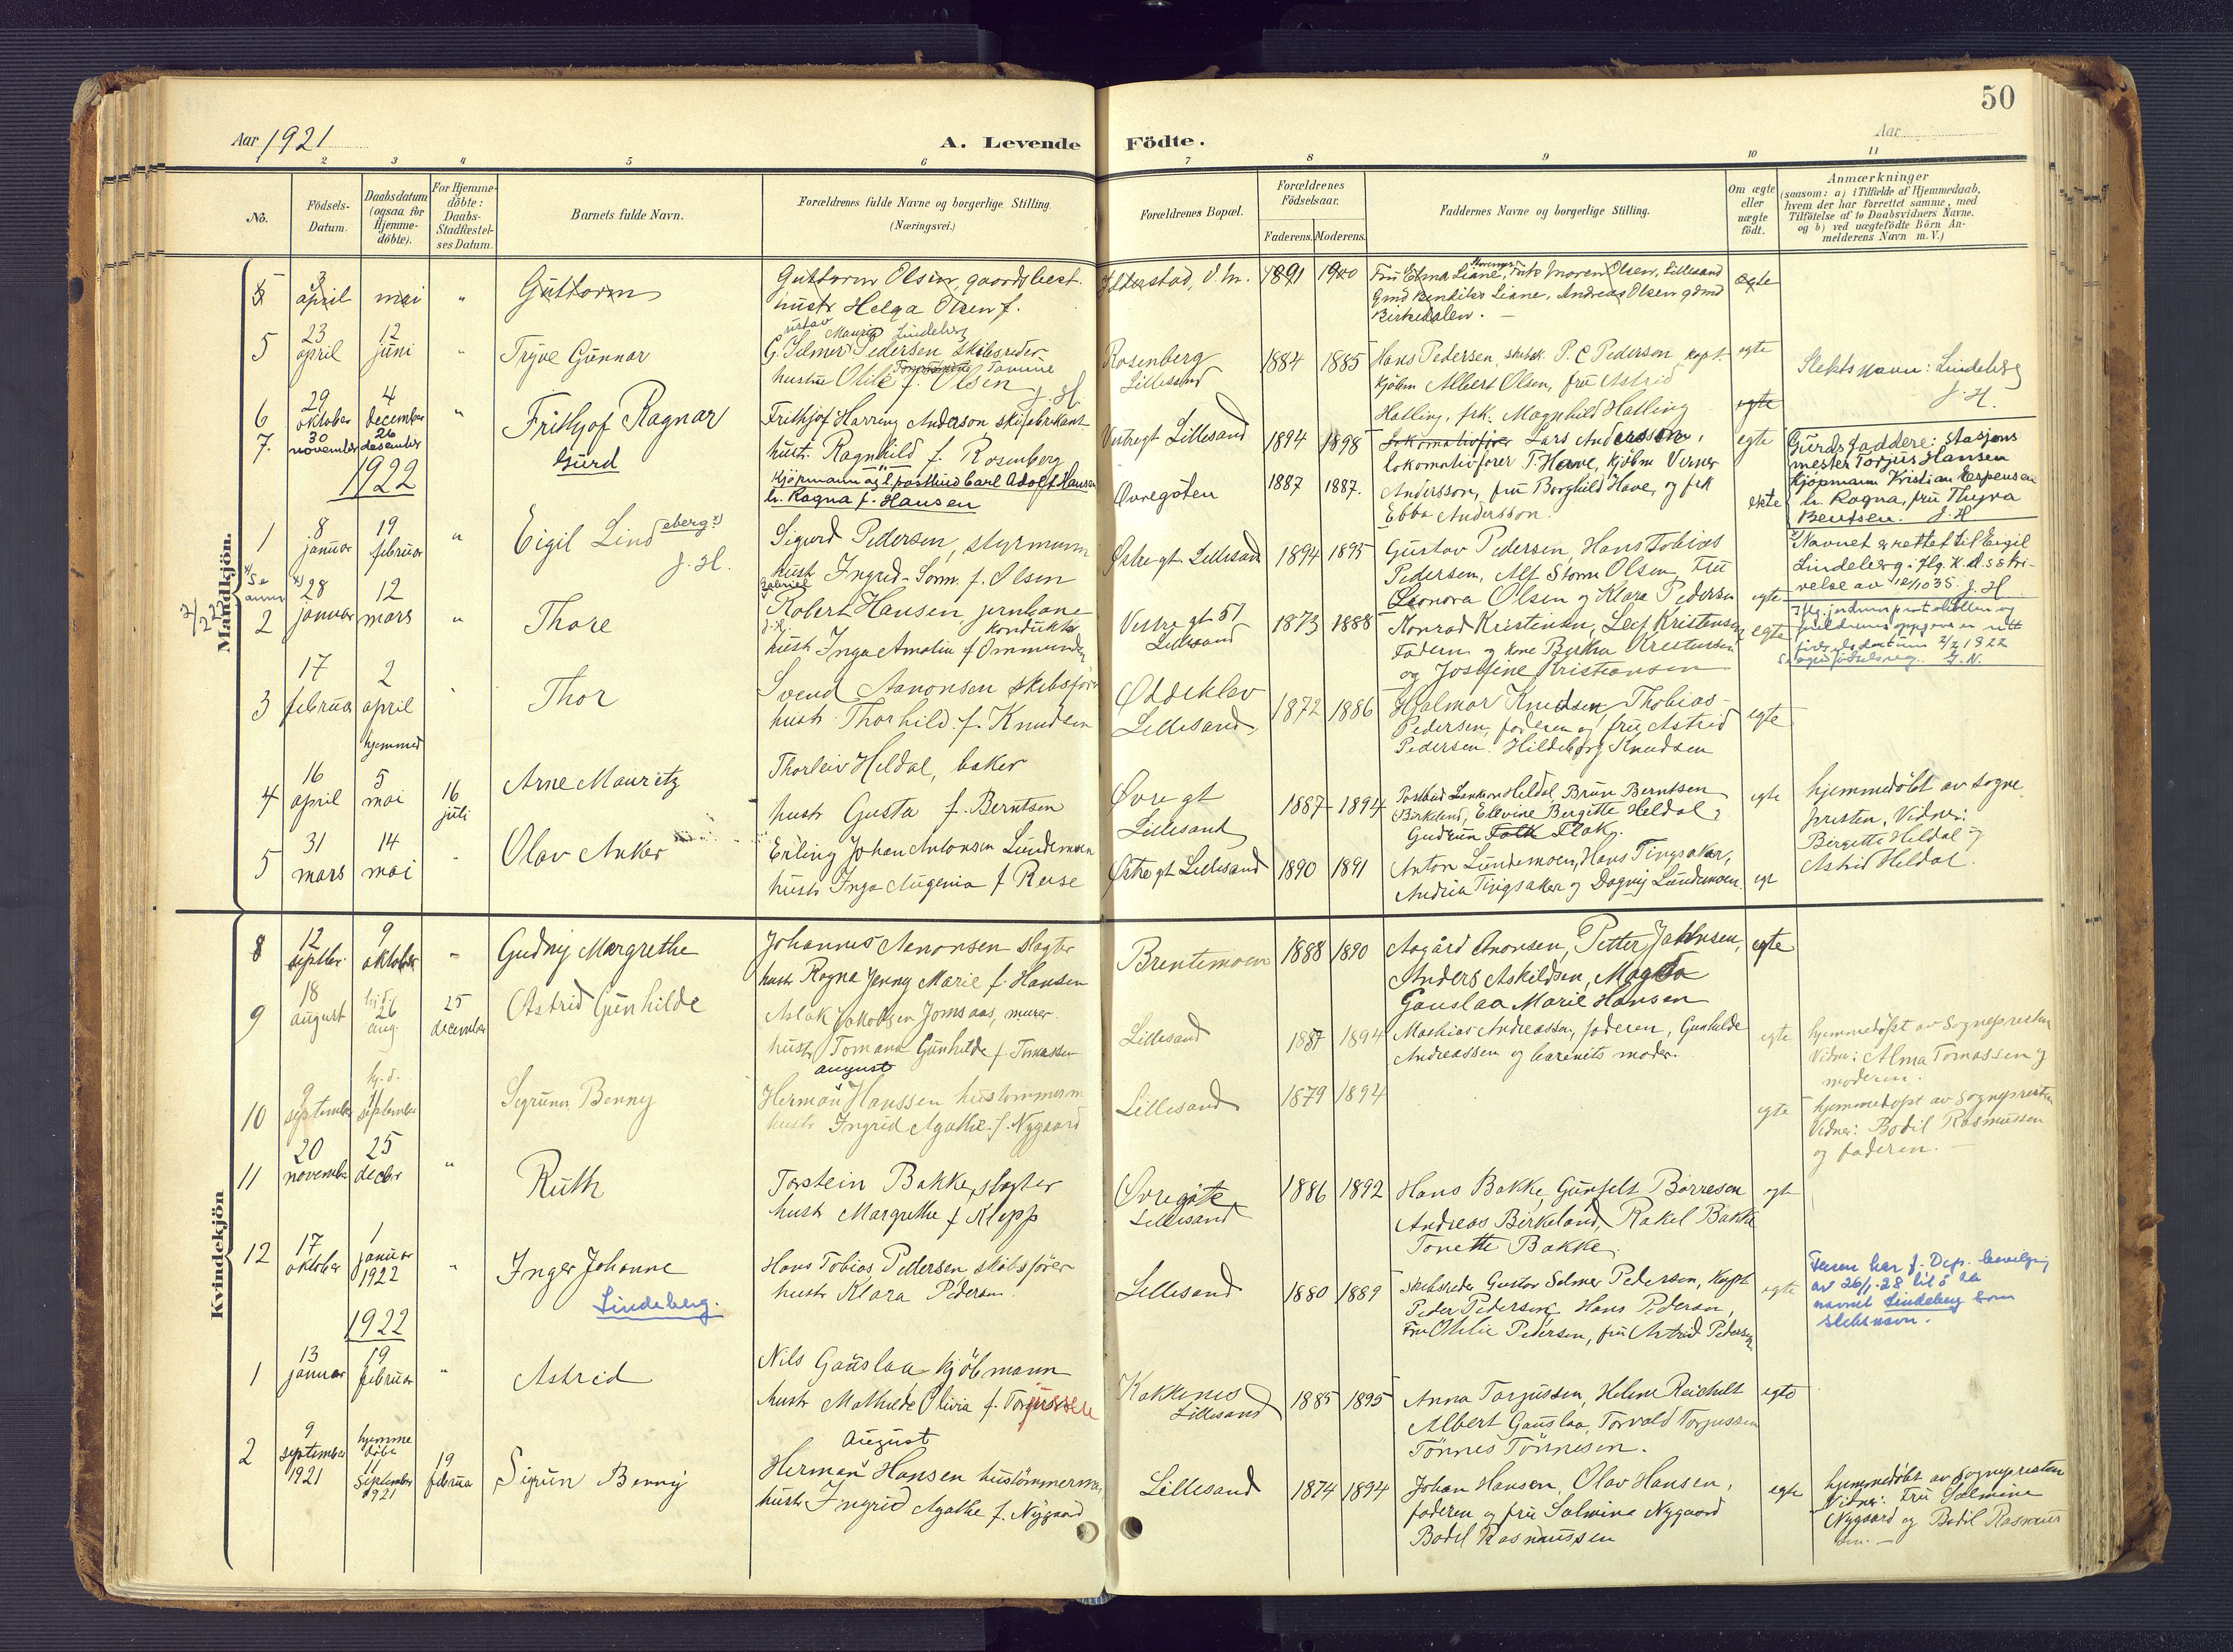 50
Aar 1921
A. Levende Födte.
Aar
1 2 3 4 5 6 7 8 9 10 11
No.
Födsels-
Datum.
Daabsdatum
(ogsaa for
Hjemme-
döbte).
For Hjemme-
döbte:
Daabs-
Stadfæstel-
ses Datum.
Barnets fulde Navn.
Forældrenes fulde Navne og borgerlige Stilling.
(Næringsvei.)
Forældrenes Bopæl.
Forældrenes
Födselsaar.
Faderens.
Moderens.
Faddernes Navne og borgerlige Stilling.
Om ægte
eller
uægte
födt.
Anmærkninger
(saasom: a) i Tilfælde af Hjemmedaab,
hvem der har forrettet samme, med
Tilföielse af to Daabsvidners Navne.
og b) ved uægtefödte Börn An-
melderens Navn m. V.)
Mandkjön.
5
3
april
mai
"
Guttorm
Guttorm Olsen, gaardbest.
hustr Helga Olsen f.
1891
1900
Olsen, Lillesand
Liane, Andreas Olsen gdmd
Birkedalen.
egte
5
23
april
12
juni
"
Tryve Gunnar
ustav Mauritz Lindeberg
G. Selmer Pedersen skibsreder
Tomine
hustru Otilie f. Olsen
J. H.
Rosenberg
Lillesand
1884
1885
Hans Pedersen, P. C Pedersen kapt.
kjöbm Albert Olsen, frü Astrid
Halling, frk. Magnhild Halling
egte
Slektsnavn: Lindeberg
J. H.
6
29
oktober
4
december
"
Frithjof Ragnar
Frithjof Harring Anderson skifabrikant
hustr. Ragnhild f. Rosenberg
Vestregt Lillesand
1894
1898
Lars Andersson,
lokomotivförer T. Have, kjöbm Verner
Andersson, frü Borghild Have, og frk
Ebba Andersson.
egte
7.
30
november
26
desember
Gurd
Kjöpmann og postbud Carl Adolf Hansen
h. Ragna f. Hansen
Övregaten
1887
1887.
ekte
Gurds faddere: stasjons
mester Torjus Hansen
Kjöpmann Kristian Espensen
h. Ragna, frü Thyra
Bentsen. J. H
1922
1
8
januar
19
februar
"
Eigil Lindeberg
J. H.
Sigurd Pedersen, styrmann
hust Ingrid f. Olsen
Östregt. Lillesand
1894
1895
Gustav Pedersen, Hans Tobias
Pedersen, Alf Storm Olsen, Frü
Leonora Olsen og Klara Pedersen
egte
Navnet er rettet til Eigil
Lindeberg iflg. K. d. s skri-
velse av 12/10 35. J. H.
2
28
januar
12
mars
"
2/2 22
Thore
Gabriel
Robert Hansen, jernbane
konduktör
hustr Inga Amalia f Ommundsen
Vestre gt 51
Lillesand
1873
1888
Konrad Kristensen, Leif Kristensen
Faderen og kone Berta Kristensen
og Josefine Kristiansen
egte
2/2 1922
3
17
februar
2
april
Thor
Svend Aanonsen skibsförer
hustr. Thorhild f. Knudsen
Oddeklev
Lillesand
1872
1886
Hjalmar Knudsen, Thobias
Pedersen, faderen og frü Astrid
Pedersen. Hildeborg Knudsen
egte
4
16
april
hjemmed
5
mai
16
juli
Arne Mauritz
Thorleiv Heldal, baker
hustr Gusta f. Berntsen
Övre gt
Lillesand
1887
1894
Heldal, Brun Berntsen
Birkeland, Ellevine Bergitte Heldal,
Gudrun Flak.
egte
hjemmedöbt av sogne
presten, Vidner:
Birgitte Heldal og
Astrid Heldal.
5
31
mars
14
mai
Olav Anker
Erling Johan Antonsen Lundemoen
hustr Inga Augenia f Reise
Östregt Lillesand
1890
1891
Anton Lundemoen, Hans Tingsaker,
Andrea Tingsaker og Dagny Lundemoen.
Kvindekjön
8
12
septbr
9
oktober
"
Gudny Margrethe
Johannes Aanonsen slagter
hustr Ragna Jenny Marie f. Hansen
Brentemoen
1888
1890
Aagård Anonsen, Petter Jakobsen,
Anders Askildsen, Magda
Gauslaa Marie Hansen
egte
9
18
august
hj.d.
26
aug.
25
december
Astrid Gunhilde
Aslak Jakobsen Jomsaas, murer.
hustr Tomana Gunhilde f. Tomassen
Lillesand
1887
1894
Mathias Andreassen, faderen, Gunhilde
Andreassen og barnets moder.
egte
hjemmedöpt av Sognepresten
Vidner: Alma Tomassen og
moderen.
10
9
september
hj.d.
september
Sigrunn Benny
august
Herman Hanssen hustömmerm
hustr Ingrid Agathe f. Nygaard
Lillesand
1879
1894
egte
hjemmedöpt av Sognepresten
Vidner: Bodil Rasmussen
og faderen.
11
20
november
25
decbr
"
Ruth
Torstein Bakke, slagter
hustr Margrethe f Klepp
Övregate
Lillesand
1886
1892
Hans Bakke, Gunfelt Börresen
Andreas Birkeland, Rakel Bakke
Tonette Bakke.
egte
12
17
oktober
1
januar
1922
"
Inger Johanne
Lindeberg.
Hans Tobias Pedersen skibsförer
hustr Klara Pedersen
Lillesand
1880
1889
Skibsreder Gustav Selmer Pedersen, Kapt
Peder Pedersen, Hans Pedersen,
Fru Otilie Pedersen, frü Astrid Pedersen
egte
Faren har f. Dep. bevilgning
av 26/1-28 til å ta
navnet Lindeberg som
slektsnavn.
1922
1
13
januar
19
februar
"
Astrid
Nils Gauslaa kjöbmann
hustr Mathilde Olivia f. Torjussen
Kokkenes
Lillesand
1885
1895
Anna Torjussen, Helene Reichelt
Albert Gauslaa, Torvald Torjussen
Tönnes Tönnesen.
egte
2
9
september
1921
hjemme
döbt
11
September
1921
19
februar
Sigrun Benny
August
Herman Hansen hustömmerman
hustr Ingrid Agathe f. Nygaard
Lillesand
1874
1894
Johan Hansen, Olav Hansen,
faderen og frü Salmine Nygaard
Bodil Rasmussen
egte
hjemmedöbt av Sognepresten
Vidner: Frü Salmine
Nygaard og Bodil Rasmus
sen.